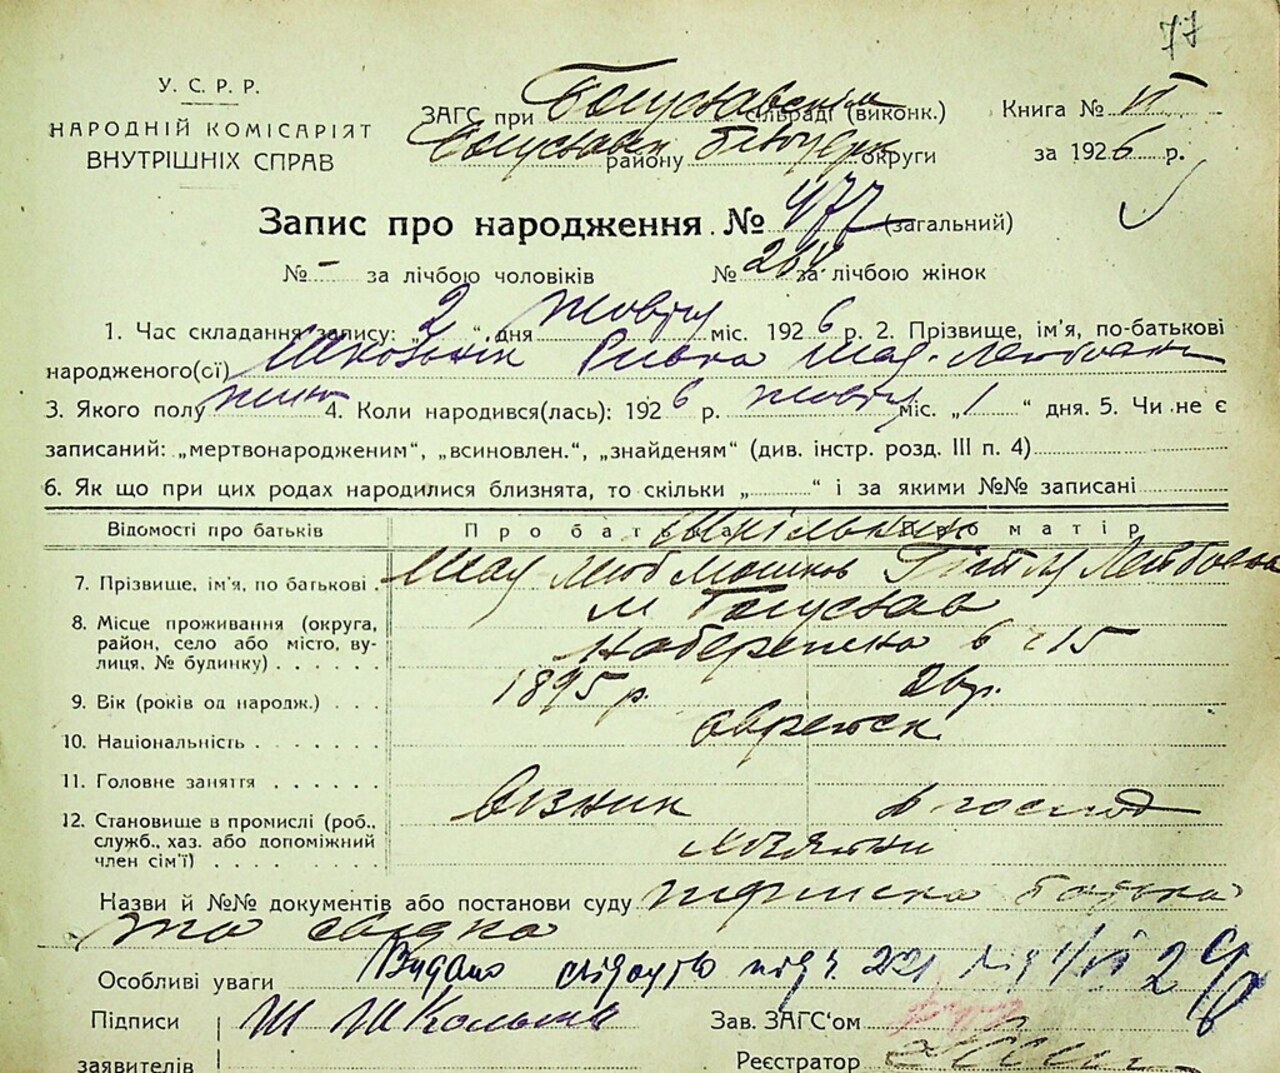 77
У. С. Р. Р.
НАРОДНІЙ КОМІСАРІЯТ
ВНУТРІШНІХ СПРАВ
ЗАГС при Богуславськім сільраді (виконк.)
району округи
Книга № II
за 1926 р.
Запис про народження № 477 (загальний)
№ – за лічбою чоловіків № 264 за лічбою жінок
1. Час складання запису: „2“ дня Жовтн міс. 1926 р. 2. Прізвище, ім'я, по-батькові
народженого(ої) Школьнік Ривка
3. Якого полу жіно 4. Коли народився(лась): 1926 р. Жовтн міс. „1“ дня. 5. Чи не є
записаний: „мертвонародженим“, „всиновлен.“, „знайденям“ (див. інстр. розд. III п. 4)
6. Як що при цих родах народилися близнята, то скільки „ “ і за якими №№ записані
Відомості про батьків Про батька Про матір
Школьник
7. Прізвище, ім'я, по батькові Мошков Гітля Лейбовна
8. Місце проживання (округа, район, село або місто, вулиця, № будинку) м Богуслав
Набережна 6 15
9. Вік (років од народж.) 1895 р. 26 р.
10. Національність єврейськ.
11. Головне заняття
Візник в господ
12. Становище в промислі (роб., служб., хаз. або допоміжний член сім'ї) хозяїни
Назви й №№ документів або постанови суду батька
та свідка
Особливі уваги Видано свідоцтво під ч. 221
Підписи Ш Школьнік Зав. ЗАГС'ом
заявителів Реєстратор